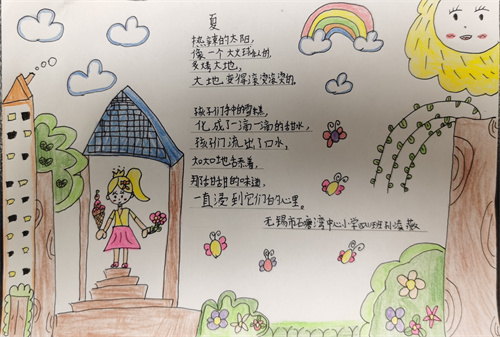 夏
热辣的太阳,
像一个大火球似的,
炙烤大地,
大地变得滚烫滚烫的。
孩子们手中的雪糕,
化成了一滴一滴的甜水,
孩子们流出了口水,
大口地舔着,
那甜甜的味道,
一直浸到它们的心里。
无锡市石塘湾中心小学四班孙凌薇